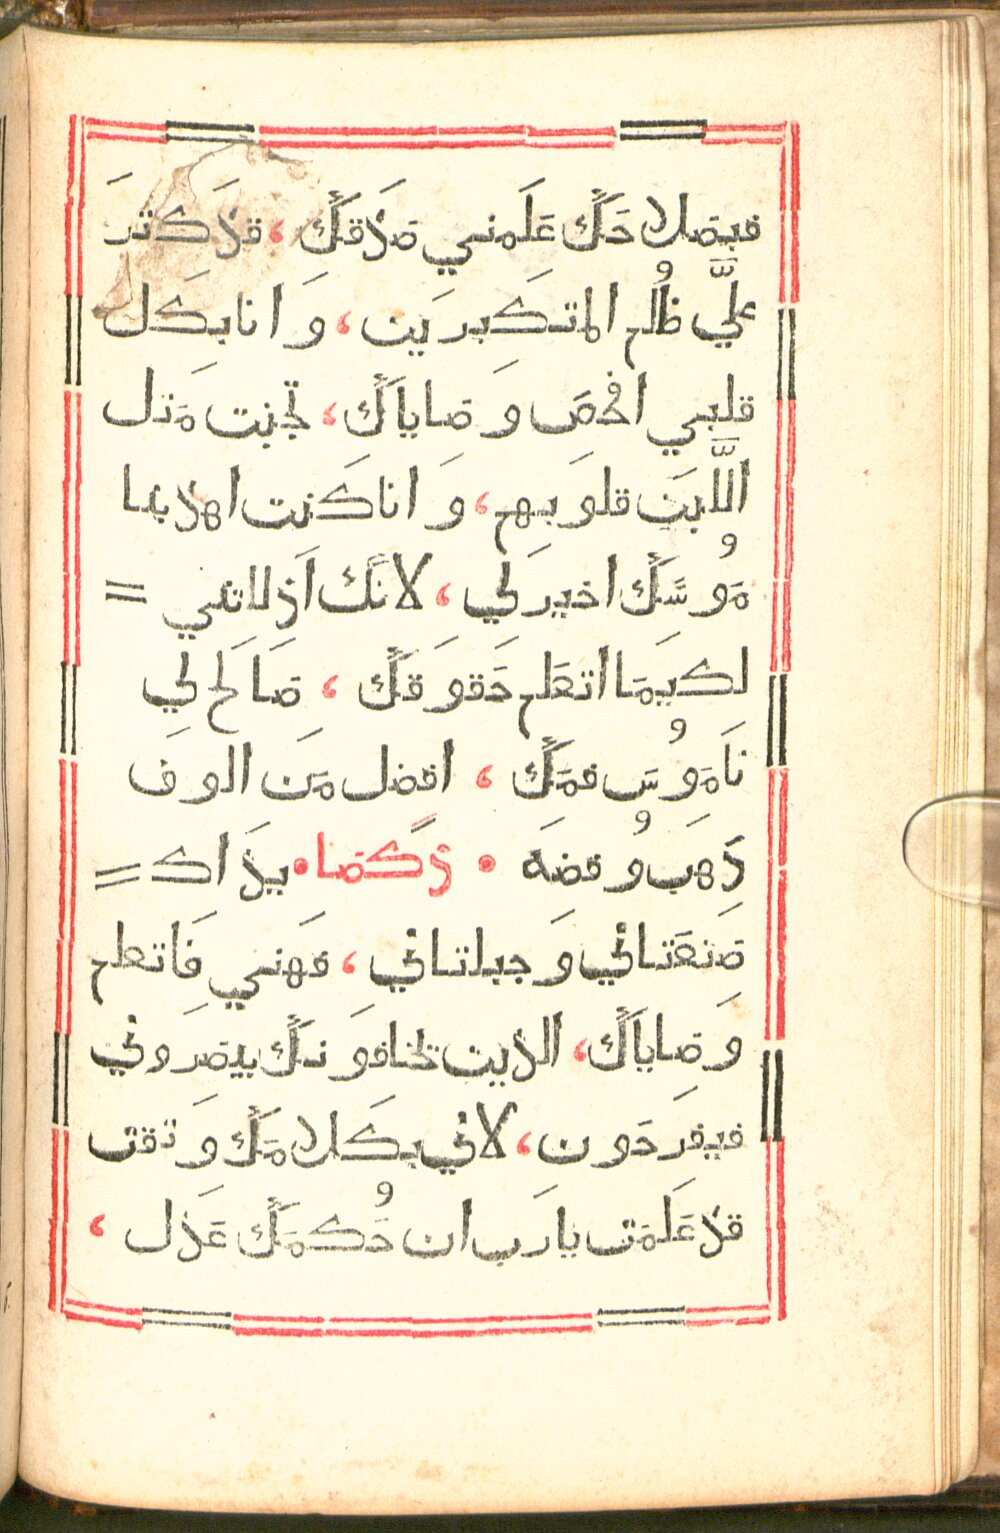 فبصلاحك علمني صدقك ، قد كثر
علي ظُلم المتكبرين ، وانا بكل
قلبي افحص وصاياك ، تجبنت مثل
اللبن قلوبهم ، وانا كنت اهدا بنا
موُسك اخير لي ، لانك اذللتني =
لكيما اتعلم حقوقك ، صالح لي
ناموُس فمك ، افضل من الوف
ذهب وُفضه • ذكصا • يداك =
صنعتاني وجبلتاني ، فهمني فاتعلم
وصاياك ، الذين يخافونك يبصروني
فيفرحون ، لاني بكلامك وثقت
قد علمت يا رب ان حُكمك عدل ،